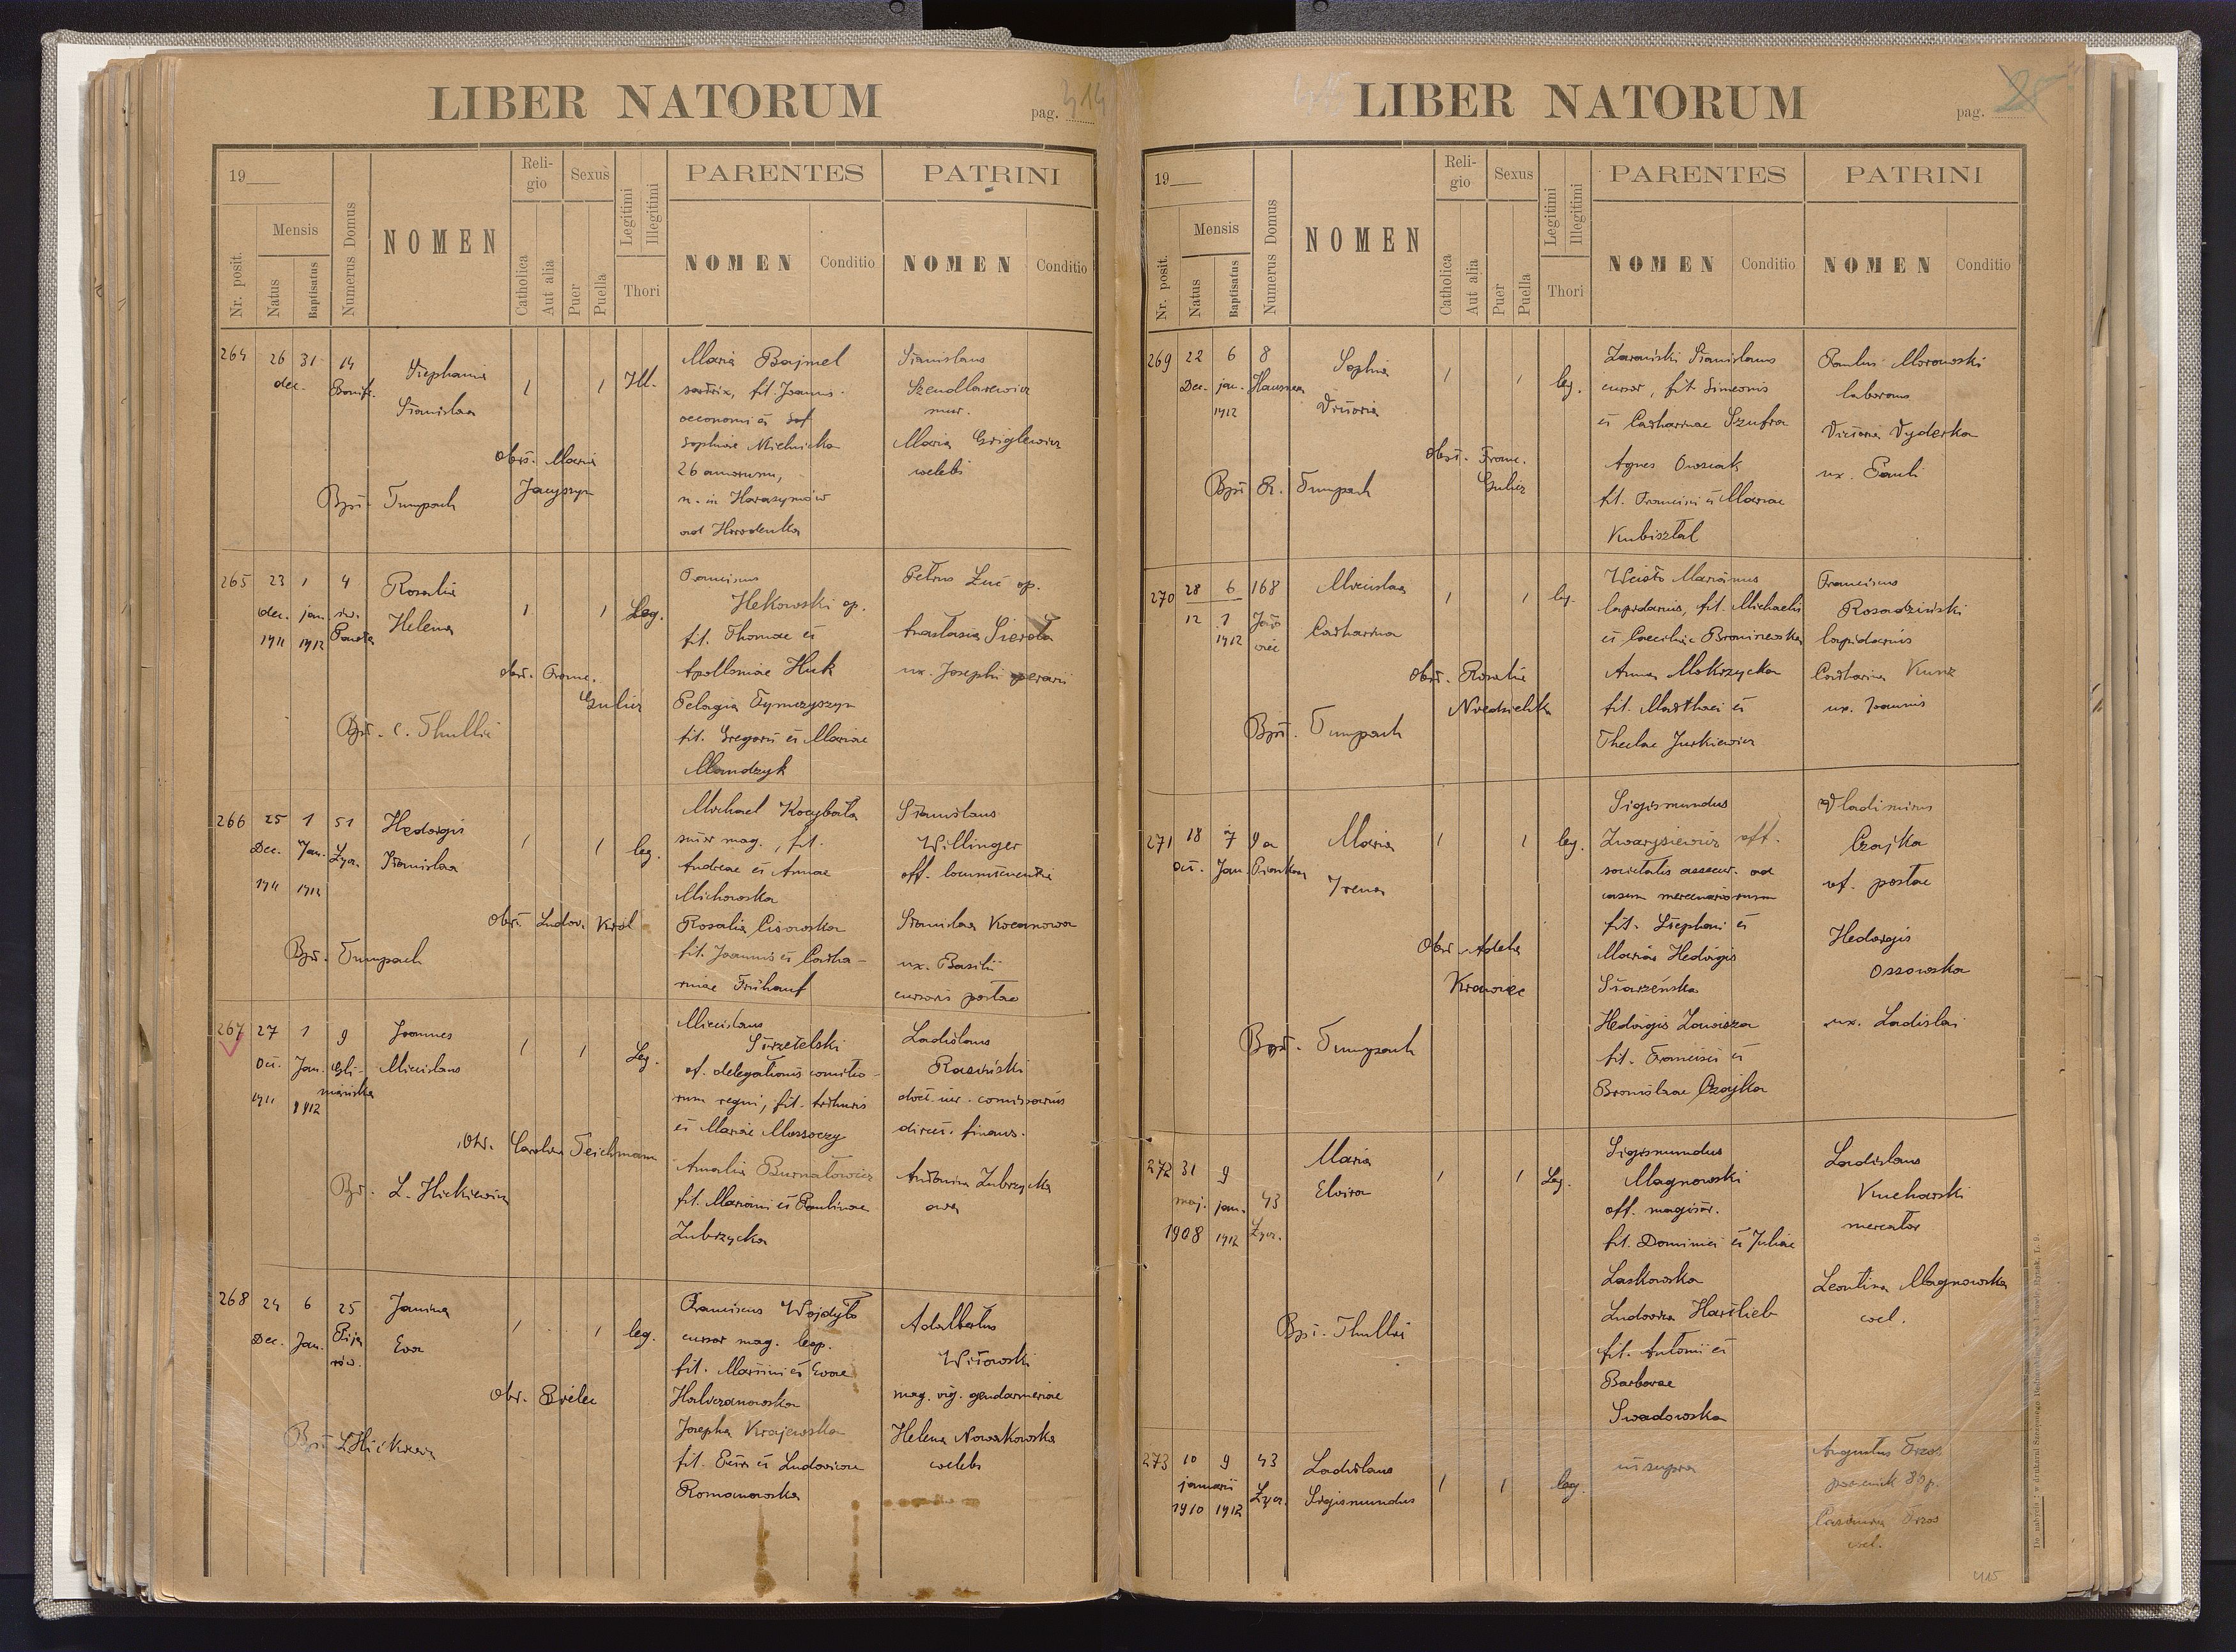 LIBER NATORUM
pag. 314
19
Reli-
gio
Sexus
Legitimi
Illegitimi
PARENTES
PATRINI
Nr. posit.
Mensis
Natus
Baptisatus
Numerus Domus
NOMEN
Catholica
Aut alia
Puer
Puella
Thori
NOMEN
Conditio
NOMEN
Conditio
264 26 31 14
dec. Bonifr.
Stephania
Stanislaa
1 1 Ill.
Obst. Maria
Jacyszyn
Bpt. Tumpach
Maria Bajmel
sartrix, fil. Joannis
oeconomi et
Sophiae Mielnicka
26 annorum,
n. in Harasymów
ad Horodenka
Stanislaus
Szendlarewicz
mur.
Maria Griglewicz
caelebs
265 23 1 4
dec. jan. św.
1911 1912
Rosalia
Helena
1 1 Leg.
obst. Franc.
Gulicz
Bpt. C. Thullie
Franciscus
Hekowski op.
fil. Thomae et
Apolloniae Huk
Pelagia Tymczyszyn
fil. Gregorii et Mariae
Mandzyk
Petrus Luc op.
Anastasia Sierota
ux. Josephi operarii
266 25 1 51
Dec. Jan. Lycz.
1911 1912
Hedvigis
Stanislaa
1 1 leg.
Obst. Ludov. Król
Bpt. Tumpach
Michael Kocybała
sutor mag., fil.
Andreae et Annae
Michowska
Rosalia Lisowska
fil. Joannis et Catha-
rinae Frühauf
Stanislaus
Willinger
off. locumtenentiae
Stanislaa Kocanowa
ux. Basilii
cursoris postae
267 27 1 9
Oct. Jan. Gli-
niańska
1911 1912
Joannes
Miecislaus
1 1 Leg.
Obst. Carolina Teichmann
Bpt. L. Hickiewicz
Miecislaus
Strzetelski
of. delegationis comitio-
rum regni, fil. Arthuris
et Mariae Mossoczy
Amalia Burnatowicz
fil. Mariani et Paulinae
Zubrzycka
Ladislaus
Rasiński
doct. iur. comissarius
direct. financ.
Antonina Zubrzycka
avia
268 24 6 25
Dec. Jan. Pija
rów.
Janina
Eva
1 1 leg.
Obst. Brilec
Bpt. L Hickiewicz
Franciscus Wojdyło
cursor mag. leop.
fil. Martini et Evae
Halviczanowska
Josepha Krajewska
fil. Petri et Ludovicae
Romanowska
Adalbertus
Witowski
mag. vig. gendarmeriae
Helena Nowakowska
caelebs
LIBER NATORUM
pag.
19
Reli-
gio
Sexus
Legitimi
Illegitimi
PARENTES
PATRINI
Nr. posit.
Mensis
Natus
Baptisatus
Numerus Domus
NOMEN
Catholica
Aut alia
Puer
Puella
Thori
NOMEN
Conditio
NOMEN
Conditio
269 22 6 8
Dec. jan. Hausnera
1912
Sophia
Victoria
1 1 leg.
Obst. Franc.
Gulicz
Bpt. R. Tumpach
Zarański Stanislaus
cursor, fil. Simeonis
et Catharinae Szufra
Agnes Owsiak
fil. Francisci et Mariae
Kubisztal
Paulus Morowski
laborans
Victoria Vyderka
ux. Pauli
270 28 6 168
12 1 Jano
1912 wiec
Miecislaa
Catharina
1 1 leg.
Obst. Rosalia
Niedzielska
Bpt. Tumpach
Weisło Marianus
lapidarius, fil. Michaelis
et Caeciliae Broniszewska
Anna Mokrzycka
fil. Matthaei et
Theclae Jurkiewicz
Franciscus
Rosadziński
lapidarius
Catharina Kunz
ux. Joannis
271 18 7 9a
Oct. Jan. Piaskowa
Maria
Irena
1 1 leg.
Obst. Adela
Krawiec
Bpt. Tumpach
Sigismundus
Zwarysiewicz off.
societatis assecur. ad
casum mercenariorum
fil. Stephani et
Mariae Hedvigis
Starzeńska
Hedvigis Zawisza
fil. Francisci et
Bronislaae Czajka
Vladimirus
Czajka
of. postae
Hedvigis
Ossowska
ux. Ladislai
272 31 9
maj. jan. 43
1908 1912 Lycz.
Maria
Elvira
1 1 Leg.
Bpt. Thullie
Sigismundus
Magnowski
off. magistr.
fil. Dominici et Juliae
Laskowska
Ludovica Hartlieb
fil. Antonii et
Barbarae
Swadowska
Ladislaus
Kucharski
mercator
Leontina Magnowska
cael.
273 10 9 43
januarii Lycz.
1910 1912
Ladislaus
Sigismundus
1 1 leg.
ut supra
Augustus Trzos
porucznik 89 p.
Casimira Trzos
cael.
415